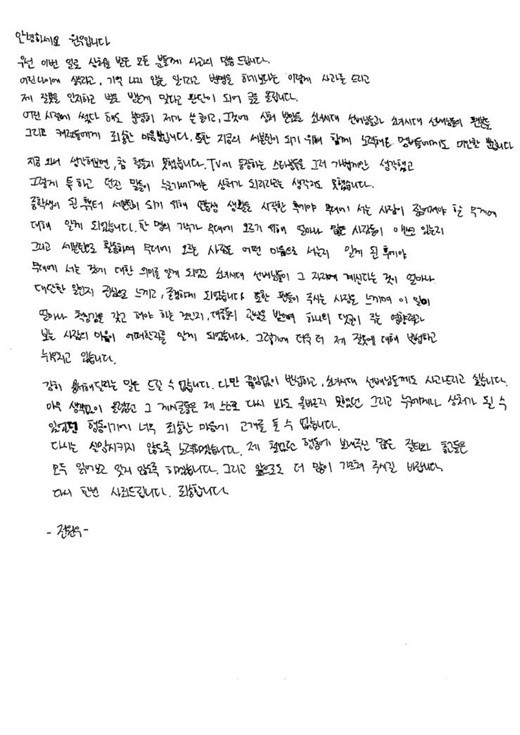 안녕하세요 원우입니다
우선 이번 일로 상처를 받은 모든 분들께 사과의 말씀 드립니다.
어린나이에 썼다고, 기억 나지 않는 일이라고 변명을 하기보다는 이렇게 사과를 드리고
제 잘못을 인지하고 벌도 받는게 맞다고 판단이 되어 글을 올립니다.
어떤 시점에 썼다 해도 분명히 제가 쓴 글이고, 그것에 상처 받았을 소녀시대 선배님들과 소녀시대 선배님들의 팬분들
그리고 캐럿들에게 죄송한 마음뿐입니다. 또한 지금의 세븐틴이 되기 위해 함께 노력해온 멤버들에게도 미안할 뿐입니다
지금 와서 생각해보면, 참 철들지 못했습니다. TV에 등장하는 스타분들을 그저 가볍게만 생각했고
그렇게 툭 하고 던진 말들이 누군가에게는 상처가 되리라고는 생각치도 못했습니다.
중학생이 된 후부터 세븐틴이 되기 위해 연습생 생활을 시작한 후에야 무대에 서는 사람이 짊어져야 할 무게에
대해 알게 되었습니다. 한 명의 가수가 무대에 오르기 위해 얼마나 많은 사람들이 애쓰고 있는지
그리고 세븐틴으로 활동하며 무대에 오르는 사람은 어떤 마음으로 서는지 알게 된 후에야
무대에 서는 것에 대한 의미를 알게 되었고 소녀시대 선배님들이 그 자리에 계신다는 것이 얼마나
대단한 일인지 진심으로 느끼고, 존경하게 되었습니다 또한 팬들이 주시는 사랑도 느끼며 이 일이
얼마나 책임감을 갖고 해야 하는 것인지, 대중들의 관심을 받으며 하나의 댓글이 주는 영향력과
보는 사람의 마음이 어떠한지를 알게 되었습니다. 그렇기에 더욱 더 제 잘못에 대해 반성하고
뉘우치고 있습니다.
감히 용서해달라는 말은 드릴 수 없습니다. 다만 끊임없이 반성하고, 소녀시대 선배님들께도 사과드리고 싶습니다.
아무 생각없이 올렸었고 그 게시글들은 제 스스로 다시 봐도 올바르지 못했었던 그리고 누구에게나 상처가 될 수
있었던 행동이기에 너무 죄송한 마음에 고개를 들 수 없습니다.
다시는 실망시키지 않도록 노력하겠습니다. 제 철없는 행동에 보내주신 많은 질타와 충고들은
모두 읽어보고 잊지 않도록 하겠습니다. 그리고 앞으로도 더 많이 가르쳐 주시길 바랍니다.
다시 한번 사죄드립니다. 죄송합니다.
- 전원우 -